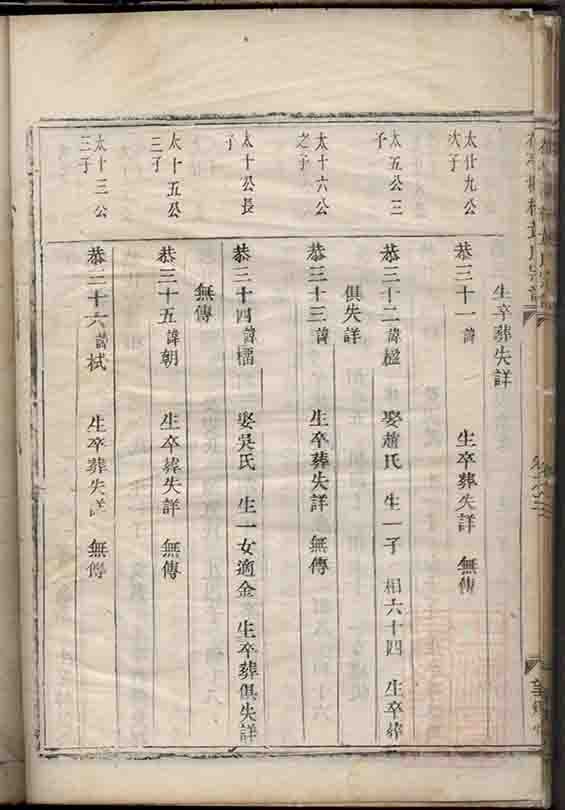 生卒葬失詳
太廿九公次子
恭三十一諱　生卒葬失詳　無傳
太五公三子
恭三十二諱楹　娶趙氏　生一子　相六十四　生卒葬
俱失詳
太十六公之子
恭三十三諱　生卒葬失詳　無傳
太十公長子
恭三十四諱櫺　娶吳氏　生一女適金　生卒葬俱失詳
無傳
太十五公三子
恭三十五諱朝　生卒葬失詳　無傳
太十三公三子
恭三十六諱栻　生卒葬失詳　無傳